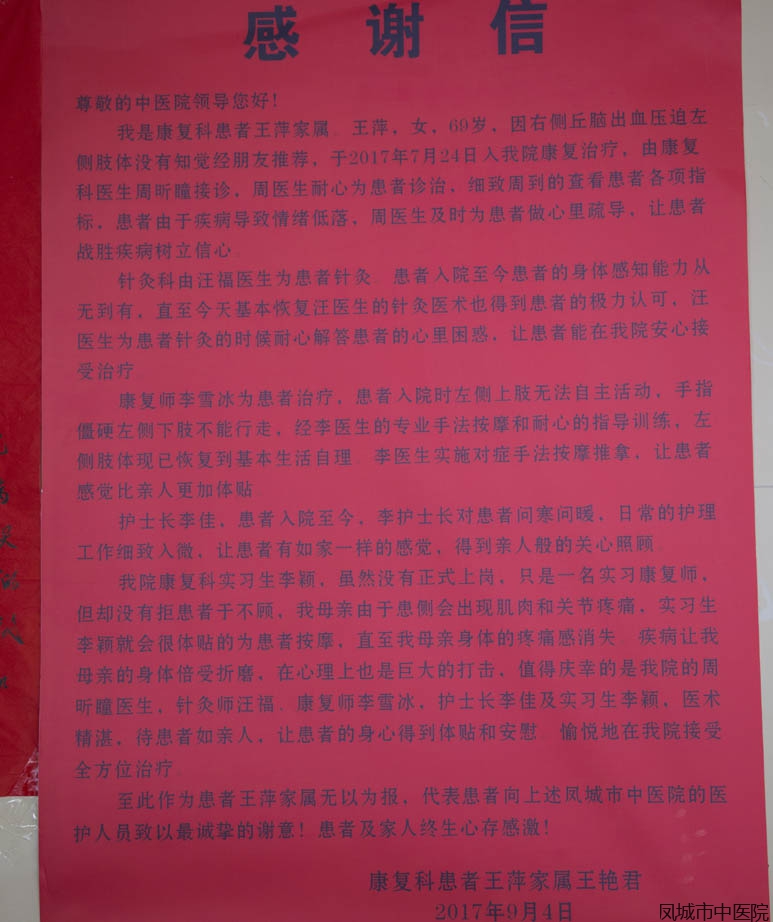 感谢信
尊敬的中医院领导您好！
我是康复科患者王萍家属。王萍，女，69岁，因右侧丘脑出血压迫左
侧肢体没有知觉经朋友推荐，于2017年7月24日入我院康复治疗，由康复
科医生周昕瞳接诊，周医生耐心为患者诊治，细致周到的查看患者各项指
标，患者由于疾病导致情绪低落，周医生及时为患者做心里疏导，让患者
战胜疾病树立信心。
针灸科由汪福医生为患者针灸。患者入院至今患者的身体感知能力从
无到有，直至今天基本恢复汪医生的针灸医术也得到患者的极力认可，汪
医生为患者针灸的时候耐心解答患者的心里困惑，让患者能在我院安心接
受治疗。
康复师李雪冰为患者治疗，患者入院时左侧上肢无法自主活动，手指
僵硬左侧下肢不能行走，经李医生的专业手法按摩和耐心的指导训练，左
侧肢体现已恢复到基本生活自理。李医生实施对症手法按摩推拿，让患者
感觉比亲人更加体贴。
护士长李佳，患者入院至今，李护士长对患者问寒问暖，日常的护理
工作细致入微，让患者有如家一样的感觉，得到亲人般的关心照顾。
我院康复科实习生李颖，虽然没有正式上岗，只是一名实习康复师，
但却没有拒患者于不顾，我母亲由于患侧会出现肌肉和关节疼痛，实习生
李颖就会很体贴的为患者按摩，直至我母亲身体的疼痛感消失。疾病让我
母亲的身体倍受折磨，在心理上也是巨大的打击，值得庆幸的是我院的周
昕瞳医生，针灸师汪福。康复师李雪冰，护士长李佳及实习生李颖，医术
精湛，待患者如亲人，让患者的身心得到体贴和安慰。愉悦地在我院接受
全方位治疗。
至此作为患者王萍家属无以为报，代表患者向上述凤城市中医院的医
护人员致以最诚挚的谢意！患者及家人终生心存感激！
康复科患者王萍家属王艳君
2017年9月4日
凤城市中医院